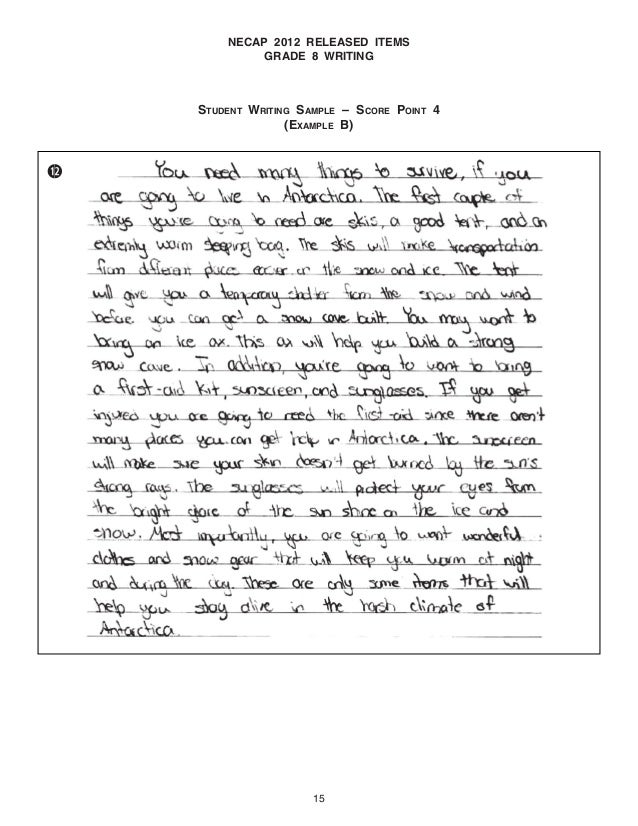 NECAP 2012 RELEASED ITEMS
GRADE 8 WRITING
STUDENT WRITING SAMPLE – SCORE POINT 4
(EXAMPLE B)
12 You need many things to survive, if you
are going to live in Antarctica. The first couple of
things you're going to need are skis, a good tent, and an
extremly warm sleeping bag. The skis will make transportation
from different place easier on the snow and ice. The tent
will give you a temporary shelter from the snow and wind
before you can get a snow cave built. You may want to
bring an ice ax. This ax will help you build a strong
snow cave. In addition, you're going to want to bring
a first-aid kit, sunscreen, and sunglasses. If you get
injured you are going to need the first-aid since there aren't
many places you can get help in Antarctica. The sunscreen
will make sure your skin doesn't get burned by the sun's
strong rays. The sunglasses will protect your eyes from
the bright glare of the sun shine on the ice and
snow. Most importantly, you are going to want wonderful
clothes and snow gear that will keep you warm at night
and during the day. These are only some items that will
help you stay alive in the harsh climate of
Antarctica.
15